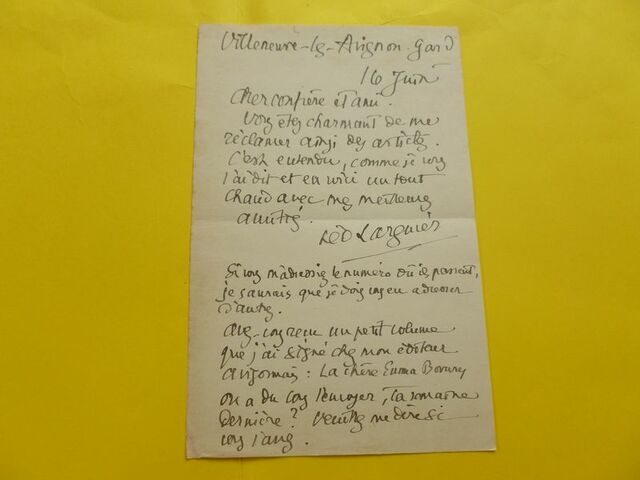 Villeneuve-lès-Avignon. Gard
16 Juin
Cher confrère et ami.
Vous êtes charmant de me
réclamer ainsi des articles.
C'est entendu, comme je vous
l'ai dit et en voici un tout
chaud avec mes meilleures
amitiés.
Léo Larguier
Si vous m'adressiez le numéro où ils passent,
je saurais que je dois vous en adresser
d'autres.
Avez-vous reçu un petit volume
que j'ai signé chez mon éditeur
avignonnais : La chère Emma Bovary
on a dû vous l'envoyer, la semaine
dernière ? Veuillez me dire si
vous l'avez.